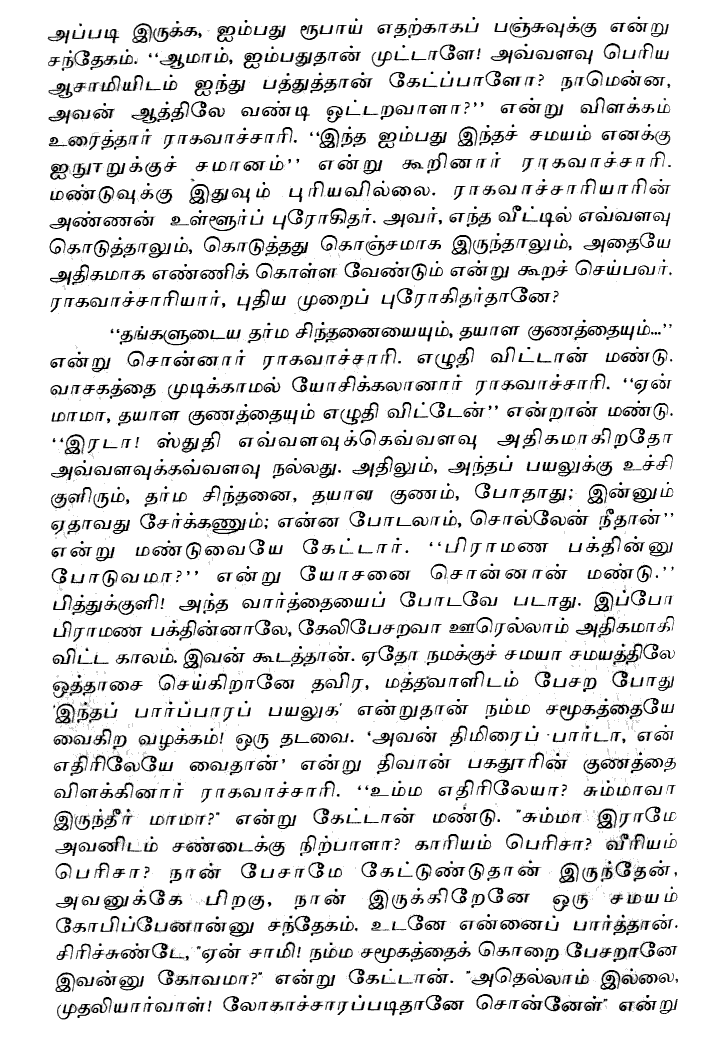 அப்படி இருக்க, ஐம்பது ரூபாய் எதற்காகப் பஞ்சுவுக்கு என்று
சந்தேகம். ‘‘ஆமாம், ஐம்பதுதான் முட்டாளே! அவ்வளவு பெரிய
ஆசாமியிடம் ஐந்து பத்துத்தான் கேட்ப்பாளோ? நாமென்ன,
அவன் ஆத்திலே வண்டி ஒட்டறவாளா?’’ என்று விளக்கம்
உரைத்தார் ராகவாச்சாரி. ‘‘இந்த ஐம்பது இந்தச் சமயம் எனக்கு
ஐநூறுக்குச் சமானம்’’ என்று கூறினார் ராகவாச்சாரி.
மண்டுவுக்கு இதுவும் புரியவில்லை. ராகவாச்சாரியாரின்
அண்ணன் உள்ளூர்ப் புரோகிதர். அவர், எந்த வீட்டில் எவ்வளவு
கொடுத்தாலும், கொடுத்தது கொஞ்சமாக இருந்தாலும், அதையே
அதிகமாக எண்ணிக் கொள்ள வேண்டும் என்று கூறச் செய்பவர்.
ராகவாச்சாரியார், புதிய முறைப் புரோகிதர்தானே?
‘‘தங்களுடைய தர்ம சிந்தனையையும், தயாள குணத்தையும்...’’
என்று சொன்னார் ராகவாச்சாரி. எழுதி விட்டான் மண்டு.
வாசகத்தை முடிக்காமல் யோசிக்கலானார் ராகவாச்சாரி. ‘‘ஏன்
மாமா, தயாள குணத்தையும் எழுதி விட்டேன்’’ என்றான் மண்டு.
‘‘இரடா! ஸ்துதி எவ்வளவுக்கெவ்வளவு அதிகமாகிறதோ
அவ்வளவுக்கவ்வளவு நல்லது. அதிலும், அந்தப் பயலுக்கு உச்சி
குளிரும், தர்ம சிந்தனை, தயாள குணம், போதாது; இன்னும்
ஏதாவது சேர்க்கணும்; என்ன போடலாம், சொல்லேன் நீதான்’’
என்று மண்டுவையே கேட்டார். ‘‘பிராமண பக்தின்னு
போடுவமா?’’ என்று யோசனை சொன்னான் மண்டு.’’
பித்துக்குளி! அந்த வார்த்தையைப் போடவே படாது. இப்போ
பிராமண பக்தின்னாலே, கேலிபேசறவா ஊரெல்லாம் அதிகமாகி
விட்ட காலம். இவன் கூடத்தான். ஏதோ நமக்குச் சமயா சமயத்திலே
ஒத்தாசை செய்கிறானே தவிர, மத்தவாளிடம் பேசற போது
'இந்தப் பார்ப்பாரப் பயலுக' என்றுதான் நம்ம சமூகத்தையே
வைகிற வழக்கம்! ஒரு தடவை. ‘அவன் திமிரைப் பார்டா, என்
எதிரிலேயே வைதான்’ என்று திவான் பகதூரின் குணத்தை
விளக்கினார் ராகவாச்சாரி. ‘‘உம்ம எதிரிலேயா? சும்மாவா
இருந்தீர் மாமா?" என்று கேட்டான் மண்டு. "சும்மா இராமே
அவனிடம் சண்டைக்கு நிற்பாளா? காரியம் பெரிசா? வீரியம்
பெரிசா? நான் பேசாமே கேட்டுண்டுதான் இருந்தேன்,
அவனுக்கே பிறகு, நான் இருக்கிறேனே ஒரு சமயம்
கோபிப்பேனான்னு சந்தேகம். உடனே என்னைப் பார்த்தான்.
சிரிச்சுண்டே, "ஏன் சாமி! நம்ம சமூகத்தைக் கொறை பேசறானே
இவன்னு கோவமா?" என்று கேட்டான். "அதெல்லாம் இல்லை,
முதலியார்வாள்! லோகாச்சாரப்படிதானே சொன்னேள்" என்று